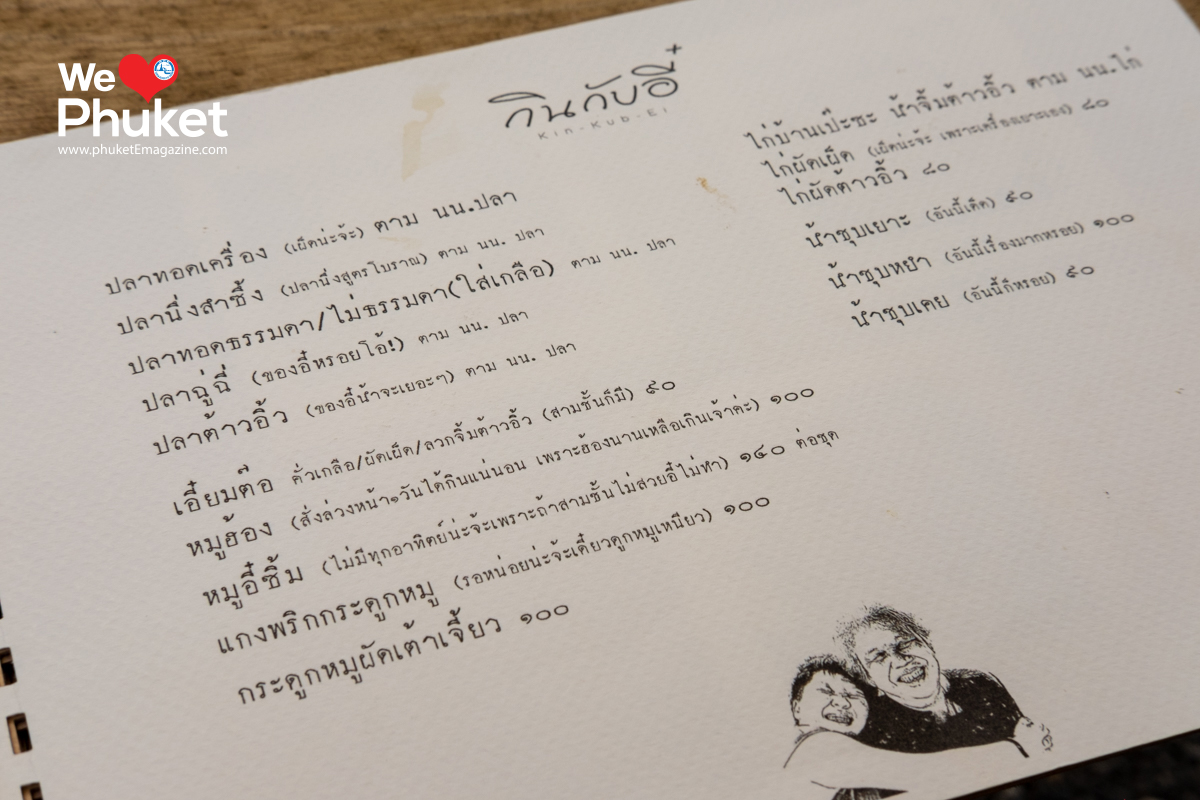 We
Phuket
www.phuketEmagazine.com
กินกับอี๋
Kin-Kub-Ei
ปลาทอดเครื่อง (เผ็ดน่ะจ้ะ) ตาม นน.ปลา
ปลานึ่งสำซึ้ง (ปลานึ่งสูตรโบราณ) ตาม นน. ปลา
ปลาทอดธรรมดา/ไม่ธรรมดา(ใส่เกลือ) ตาม นน. ปลา
ปลาฉู่ฉี่ (ของอี๋หรอยโอ้!) ตาม นน. ปลา
ปลาต้าวอิ้ว (ของอี๋น้ำจะเยอะๆ) ตาม นน. ปลา
เอี๋ยมต๋อ คั่วเกลือ/ผัดเผ็ด/ลวกจิ้มต้าวอิ้ว (สามชั้นก็มี) ๙๐
หมูฮ้อง (สั่งล่วงหน้า๑วันได้กินแน่นอน เพราะฮ้องนานเหลือเกินเจ้าค่ะ) ๑๐๐
หมูอี๋ซิ้ม (ไม่มีทุกอาทิตย์น่ะจ้ะเพราะถ้าสามชั้นไม่สวยอี๋ไม่ทำ) ๑๔๐ ต่อชุด
แกงพริกกระดูกหมู (รอหน่อยน่ะจ้ะเดี๋ยวดูกหมูเหนียว) ๑๐๐
กระดูกหมูผัดเต้าเจี้ยว ๑๐๐
ไก่บ้านเป๊ะซะ น้ำจิ้มต้าวอิ้ว ตาม นน.ไก่
ไก่ผัดเผ็ด (เผ็ดน่ะจ้ะ เพราะเครื่องเยาะเอง) ๘๐
ไก่ผัดต้าวอิ้ว ๘๐
น้ำชุบเยาะ (อันนี้เด็ด) ๙๐
น้ำชุบหยำ (อันนี้เรื่องมากหรอย) ๑๐๐
น้ำชุบเคย (อันนี้ก็หรอย) ๙๐